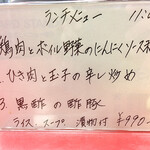 ランチメニュー 11:
鶏肉とホイル野菜のにんにくソース和
2.ひき肉と玉子の辛し炒め
3.黒酢の酢豚
ライス スープ 漬物付 ¥990